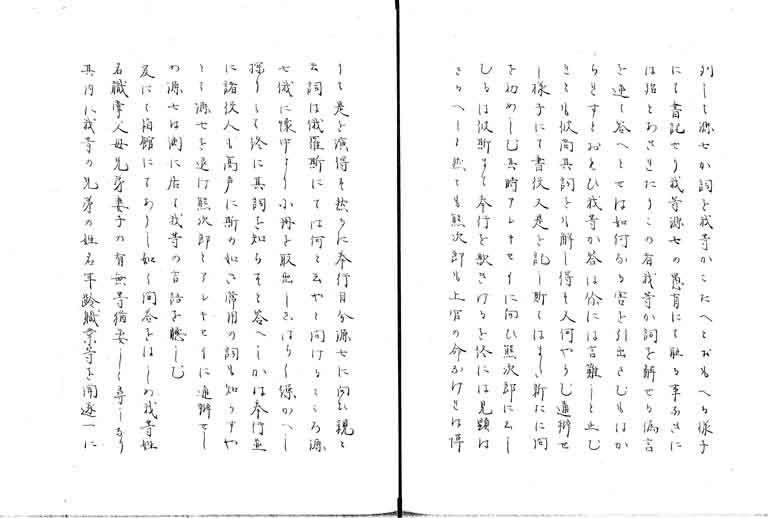 列して源七か詞を我等かこたへとおもへる様子
にて書記せり我等源七の愚盲にて取る事ふさに
は指とあさきたりこの有我等か詞を解せる偽言
を進て答へとせは如何なる害を引出さむもはか
らとすとおもひ我等か答は俗には言難しと云む
きとも彼尚其詞をも解し得も又何やらむ通辨せ
し様子にて書役又是を記し斯てはまた新たに問
を初めしむ其時アレキセイに向ひ熊次郎に云し
むるは彼斯まて奉行を欺きけるを終には見顕は
さるへしと然ても熊次郎も上官の命かけきは憚
りて是を演得も扨うに奉行自分源七に向ひ親と
云詞は俄羅斯にては何と云やと問けるところ源
七俄に懐中より小冊を取出しさはらく繰かへし
探りして終に其詞を知らすと答へしかは奉行並
に諸役人も高声に斯の如き常用の詞も知らすや
とて源七を退け熊次郎とアレキセイに通辨せし
め源七は側に居て我等の言語を聴しむ
友にて箱館にてありし如く問答をはしめ我等姓
名職掌父母兄弟妻子の有無等猶委しく尋しなり
其内に我等の兄弟の姓名年齢職業等を問逐一に